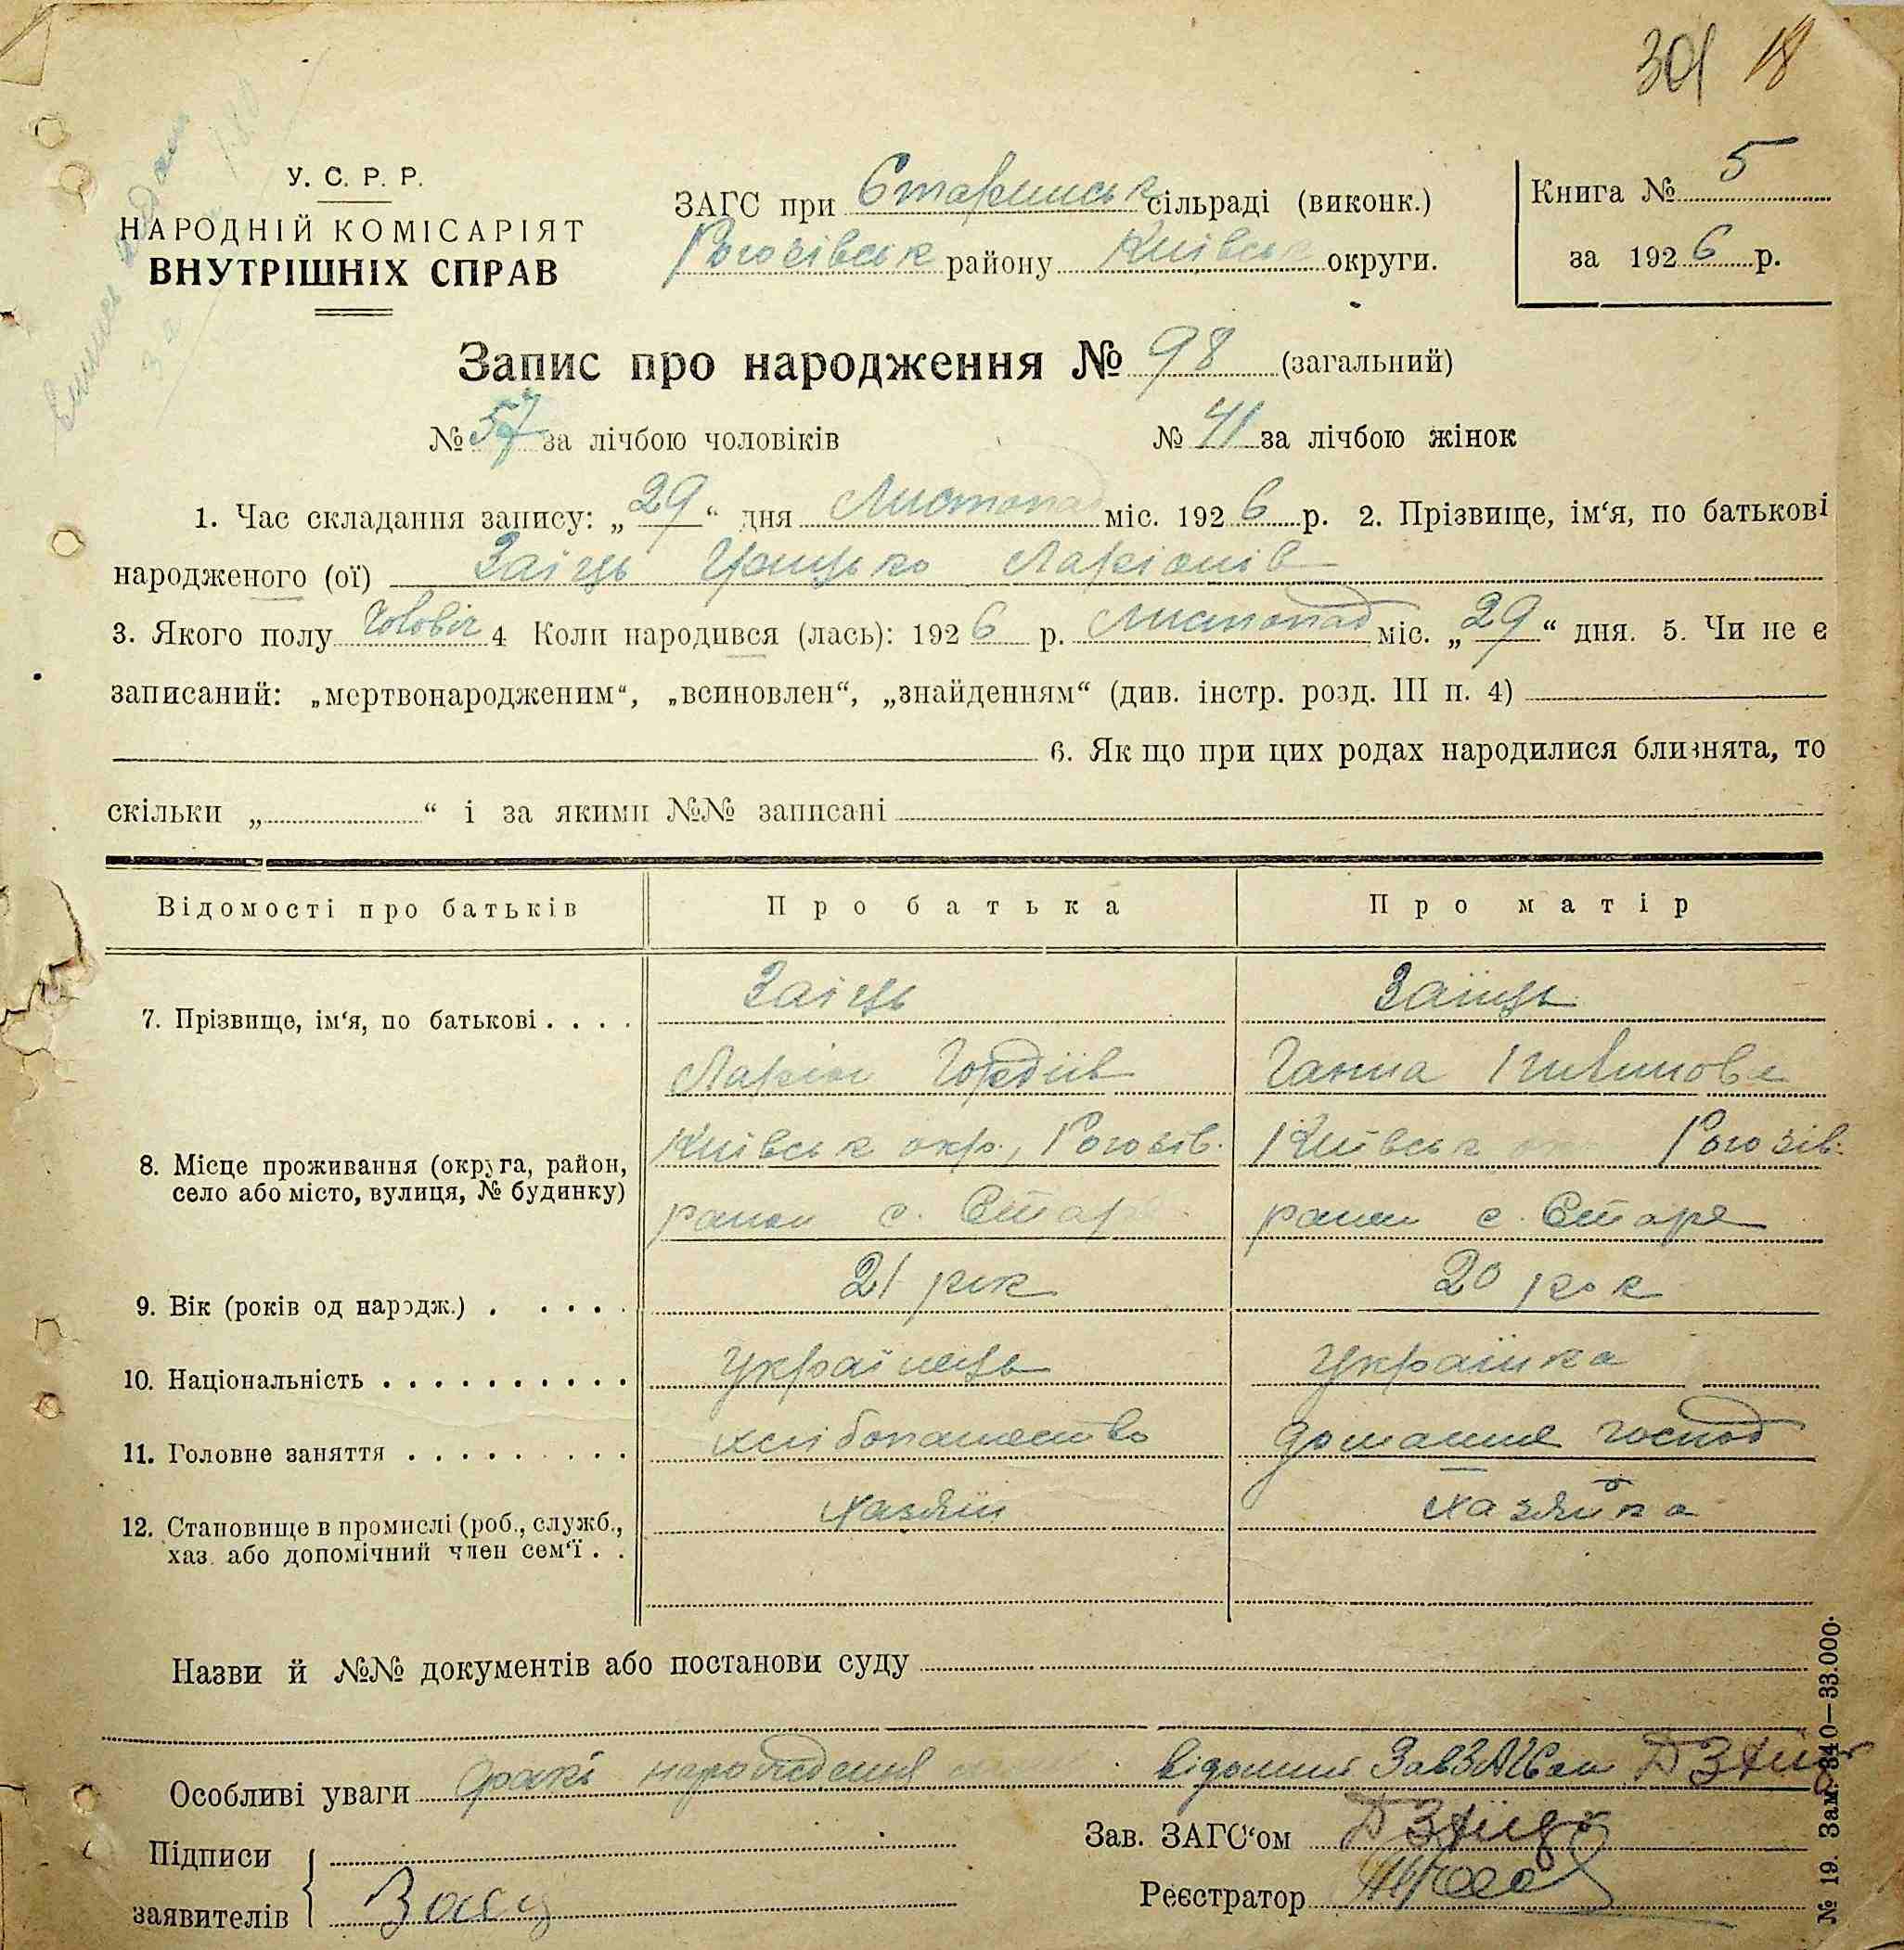 301 18
У. С. Р. Р.
НАРОДНІЙ КОМІСАРІЯТ
ВНУТРІШНІХ СПРАВ
ЗАГС при Старинськ сільраді (виконк.)
Рогозівськ району Київськ округи.
Книга № 5
за 1926 р.
Запис про народження № 98 (загальний)
№ 57 за лічбою чоловіків № 41 за лічбою жінок
1. Час складання запису: „29“ дня Листопад міс. 1926 р. 2. Прізвище, ім‘я, по батькові
народженого (ої) Заіць Грицько Ларіонів
3. Якого полу чоловіч 4 Коли народився (лась): 1926 р. Листопад міс. „29“ дня. 5. Чи не є
записаний: „мертвонародженим“, „всиновлен“, „знайденням“ (див. інстр. розд. III п. 4)
6. Як що при цих родах народилися близнята, то
скільки „ “ і за якими №№ записані
Відомості про батьків Про батька Про матір
7. Прізвище, ім‘я, по батькові . . . . Заіць Заїць
Ларіон Гордіїв Ганна
8. Місце проживання (округа, район, Київськ окр., Рогозів. Київськ Рогозів.
село або місто, вулиця, № будинку) район с. Старе район с. Старе
9. Вік (років од народж.) . . . . . 21 рік 20 рок
10. Національність . . . . . . . . . . Українець Українка
11. Головне заняття . . . . . . . . . хліборобство домашнє господ
12. Становище в промислі (роб., служб., хазяїн хазяйка
хаз. або допомічний член сем‘ї . .
Назви й №№ документів або постанови суду
Особливі уваги факт народження відомий ЗавЗАГСом Д Заїць
Підписи
заявителів Заяц
Зав. ЗАГС‘ом Д Заїць
Реєстратор
№ 19. Зам. 340—33.000.